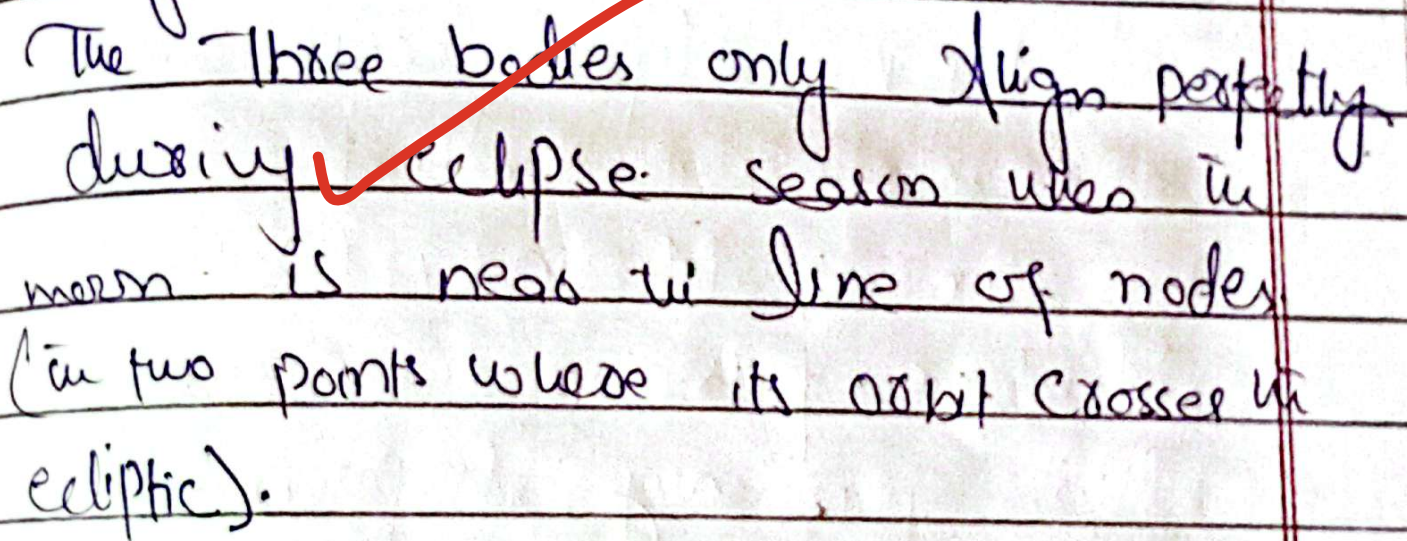 The Three bodies only Align perfectly
during eclipse season when the
moon is near the line of nodes
(the two points where its orbit crosses the
ecliptic).